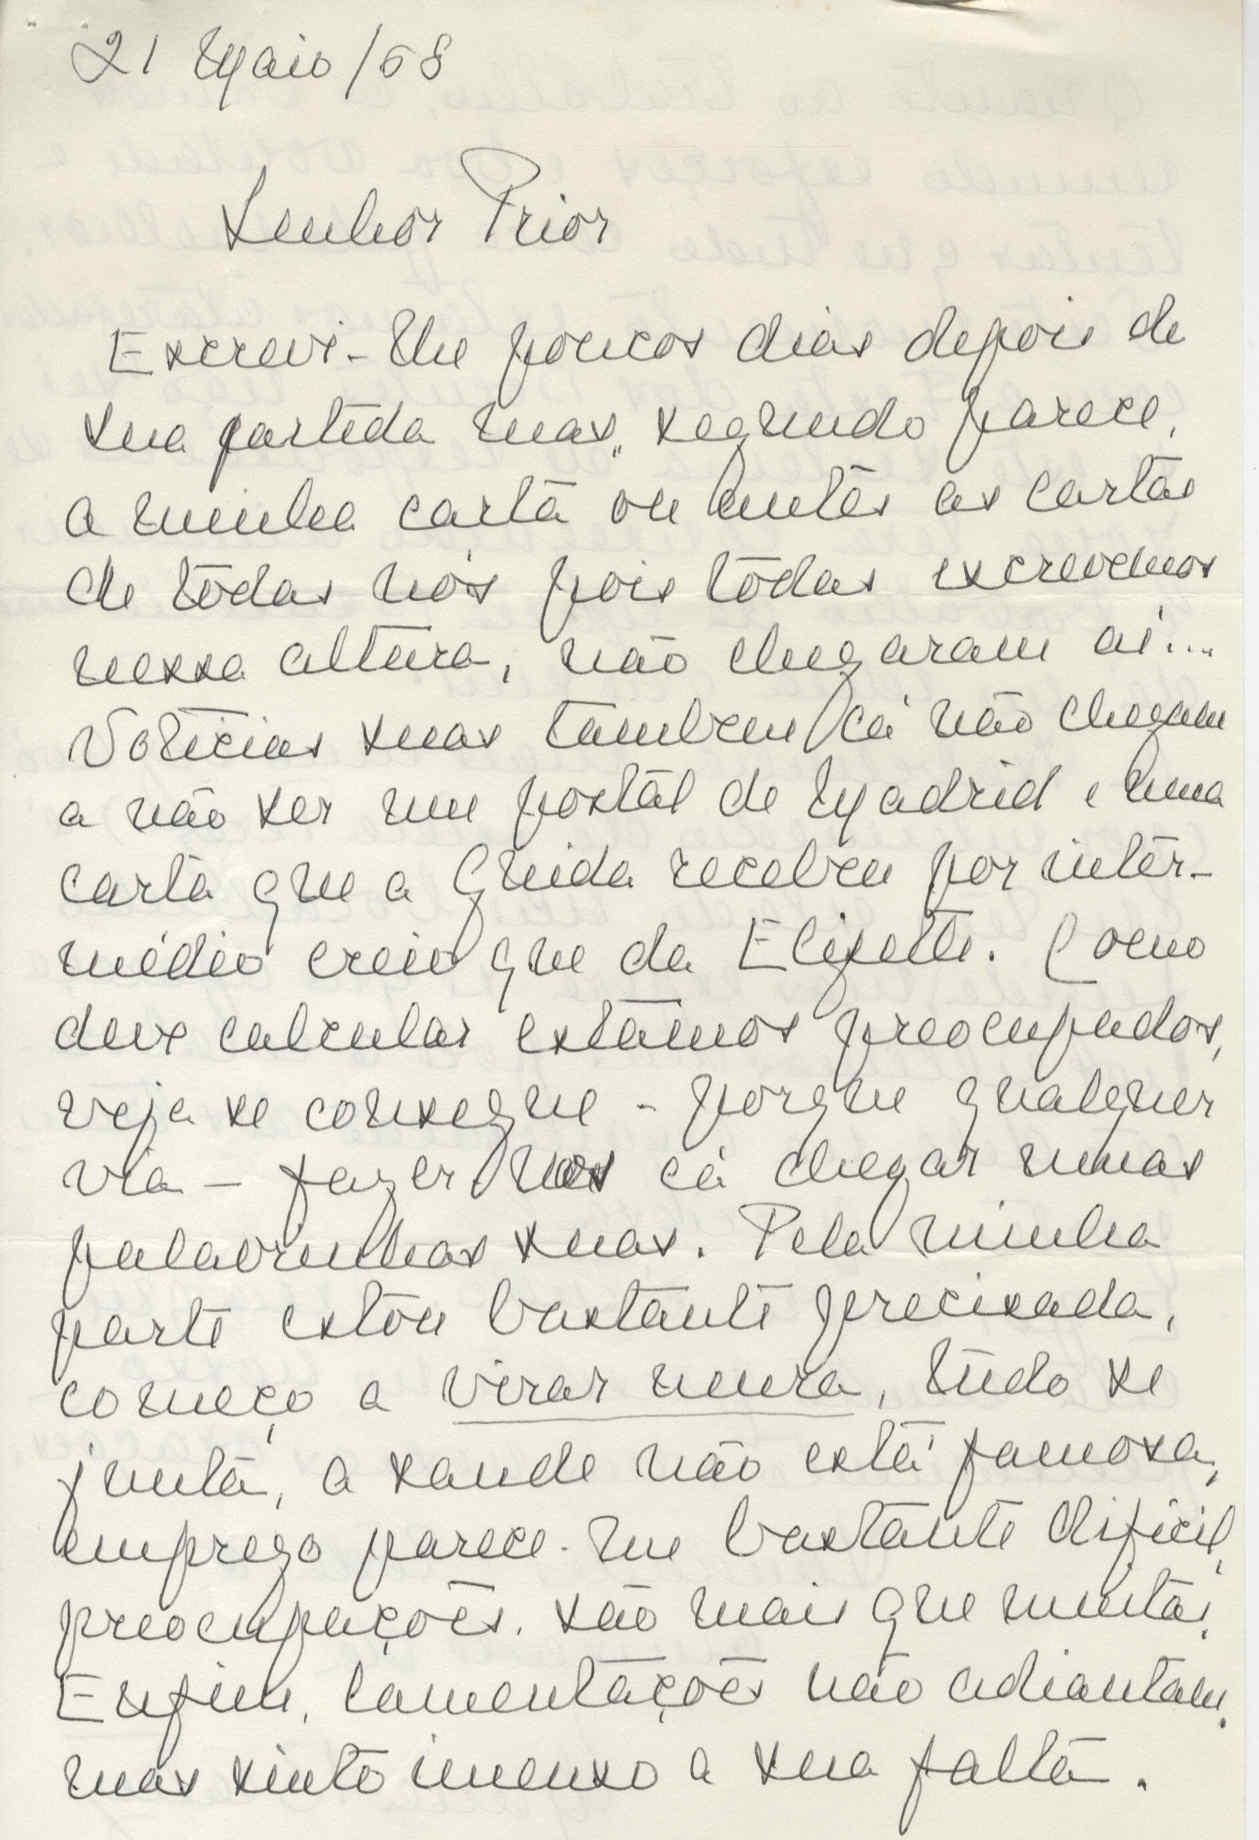 21 Maio/68
Senhor Prior
Escrevi-lhe poucos dias depois de
sua partida mas, segundo parece,
a minha carta ou antes as cartas
de tôdas nós pois tôdas escrevemos
nessa altura, não chegaram aí...
Noticias suas tambem cá não chegam
a não ser um postal de Madrid e uma
carta que a Guida recebeu por inter-
médio creio que da Elisette. Como
deve calcular estamos preocupados,
veja se consegue - porque qualquer
via - fazer-nos cá chegar umas
palavrinhas suas. Pela minha
parte estou bastante precisada,
começo a virar neura, tudo se
junta, a saude não está famosa,
emprego parece-me bastante dificil,
preocupações são mais que muitas.
Enfim, lamentações não adiantam,
mas sinto imenso a sua falta.